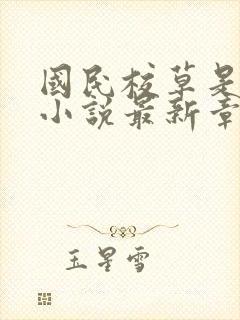 國民校草是
小說最新章
玉星雪